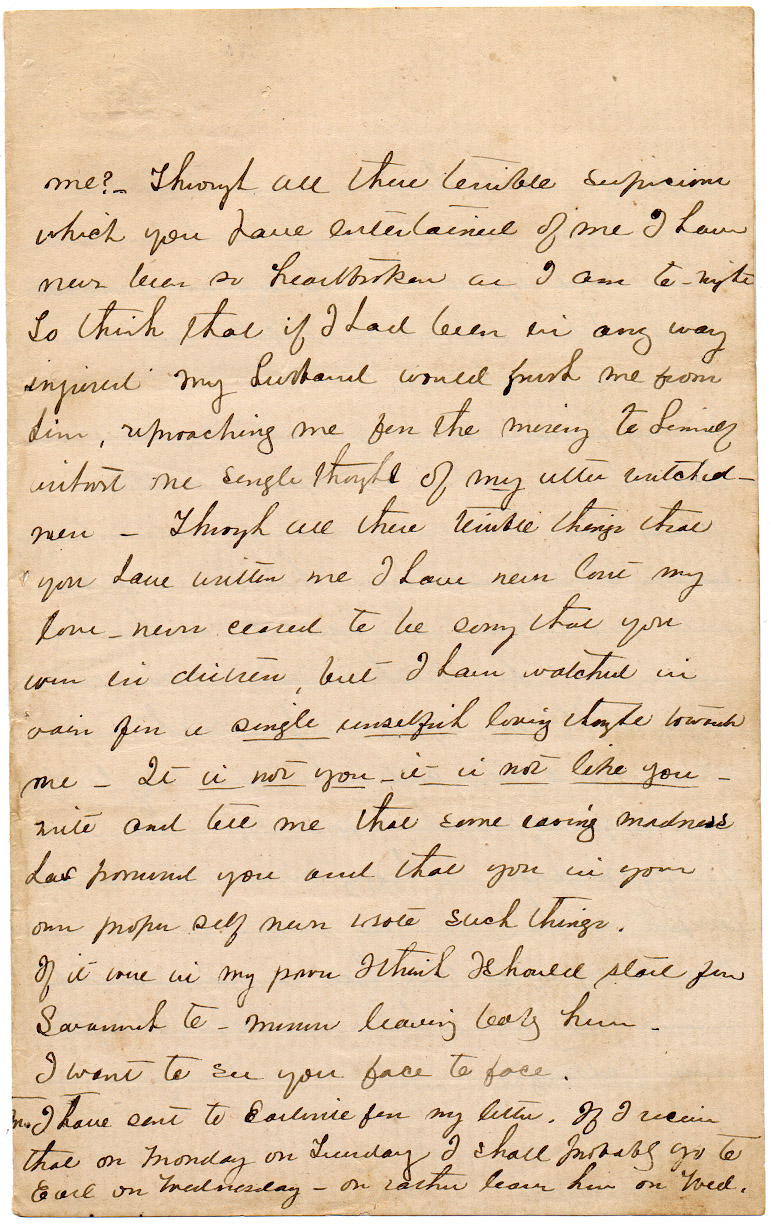 me? – Through all these terrible suspicions
which you have entertained of me I have
never been so heartbroken as I am to-night
To think that if I had been in any way
injured my husband would push me from
him, reproaching me for the misery to himself
without one single thought of my utter wretched-
ness – Through all these terrible things that
you have written me I have never lost my
love – never ceased to be sorry that you
were in distress, but I have watched in
vain for a single unselfish loving thought towards
me – It is not you – it is not like you –
write and tell me that some raving madness
has possessed you and that you in your
own proper self never wrote such things.
If it were in my power I think I should start for
Savannah to-morrow leaving baby here –
I want to see you face to face.
I have sent to Earlville for my letter. If I receive
that on Monday or Tuesday I shall probably go to
Earl on Wednesday – or rather leave here on Wed.